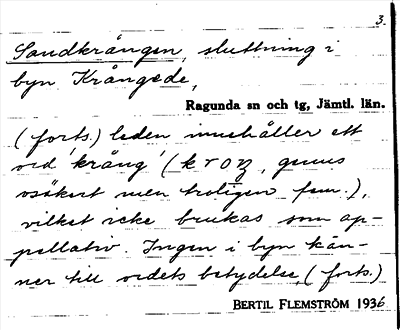 3.
Sandkrången, sluttning i
byn Krångede,
Ragunda sn och tg, Jämtl. län.
(forts.) leden innehåller ett
ord 'krång' (kroŋ, genus
osäkert men troligen fem.),
vilket icke brukas som ap-
pellativ. Ingen i byn kän-
ner till ordets betydelse, (forts.)
BERTIL FLEMSTRÖM 1936